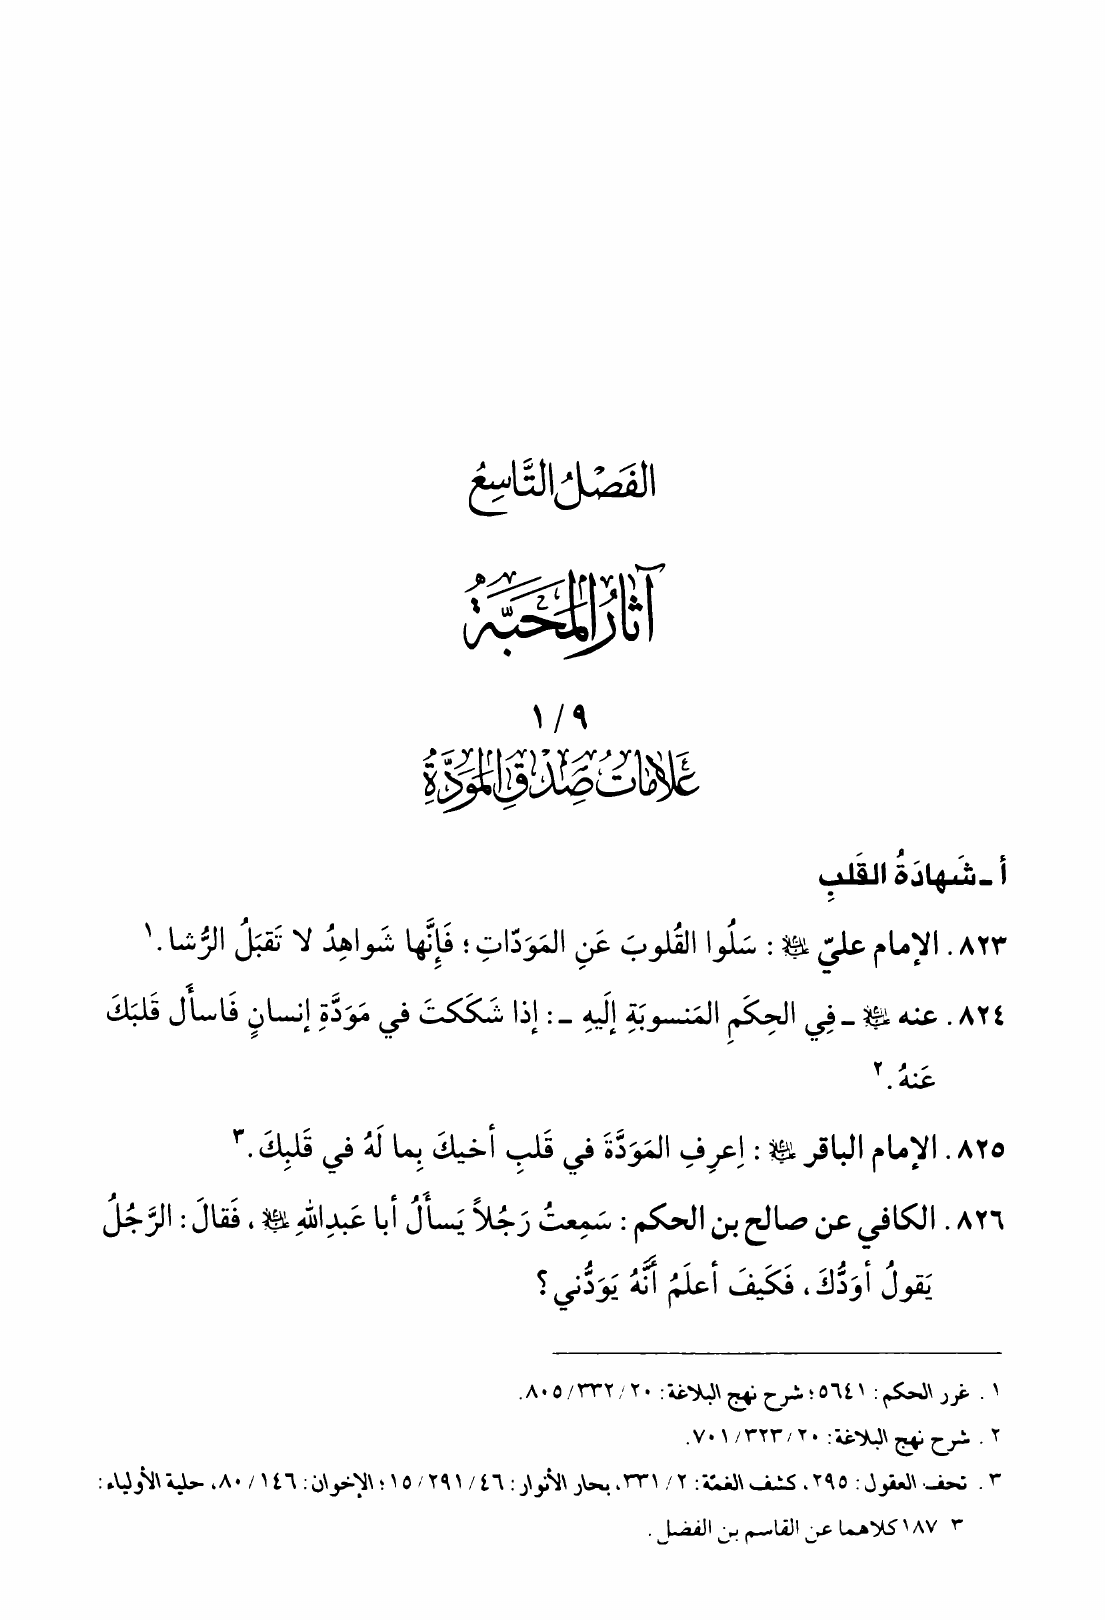 الفَصْلُ التَّاسِعُ
آثارُ المَحَبَّةُ
٩ / ١
عَلاماتُ صِدْقِ المَوَدَّةِ
أ ـ شَهادَةُ القَلبِ
٨٢٣ . الإمام عليّ ﵇ : سَلُوا القُلوبَ عَنِ المَوَدّاتِ ؛ فَإِنَّها شَواهِدُ لا تَقبَلُ الرُّشا . ١
٨٢٤ . عنه ﵇ ـ فِي الحِكَمِ المَنسوبَةِ إلَيهِ ـ : إذا شَكَكتَ في مَوَدَّةِ إنسانٍ فَاسأَل قَلبَكَ
عَنهُ . ٢
٨٢٥ . الإمام الباقر ﵇ : اِعرِفِ المَوَدَّةَ في قَلبِ أخيكَ بِما لَهُ في قَلبِكَ . ٣
٨٢٦ . الكافي عن صالح بن الحكم : سَمِعتُ رَجُلاً يَسأَلُ أبا عَبدِاللهِ ﵇ ، فَقالَ : الرَّجُلُ
يَقولُ أوَدُّكَ ، فَكَيفَ أعلَمُ أنَّهُ يَوَدُّني ؟
١ . غرر الحكم : ٥٦٤١ ؛ شرح نهج البلاغة : ٢٠ / ٣٣٢ / ٨٠٥ .
٢ . شرح نهج البلاغة : ٢٠ / ٣٢٣ / ٧٠١ .
٣ . تحف العقول : ٢٩٥ ، كشف الغمّة : ٢ / ٣٣١ ، بحار الأنوار : ٤٦ / ٢٩١ / ١٥ ؛ الإخوان : ١٤٦ / ٨٠ ، حلية الأولياء :
٣ ١٨٧ كلاهما عن القاسم بن الفضل .